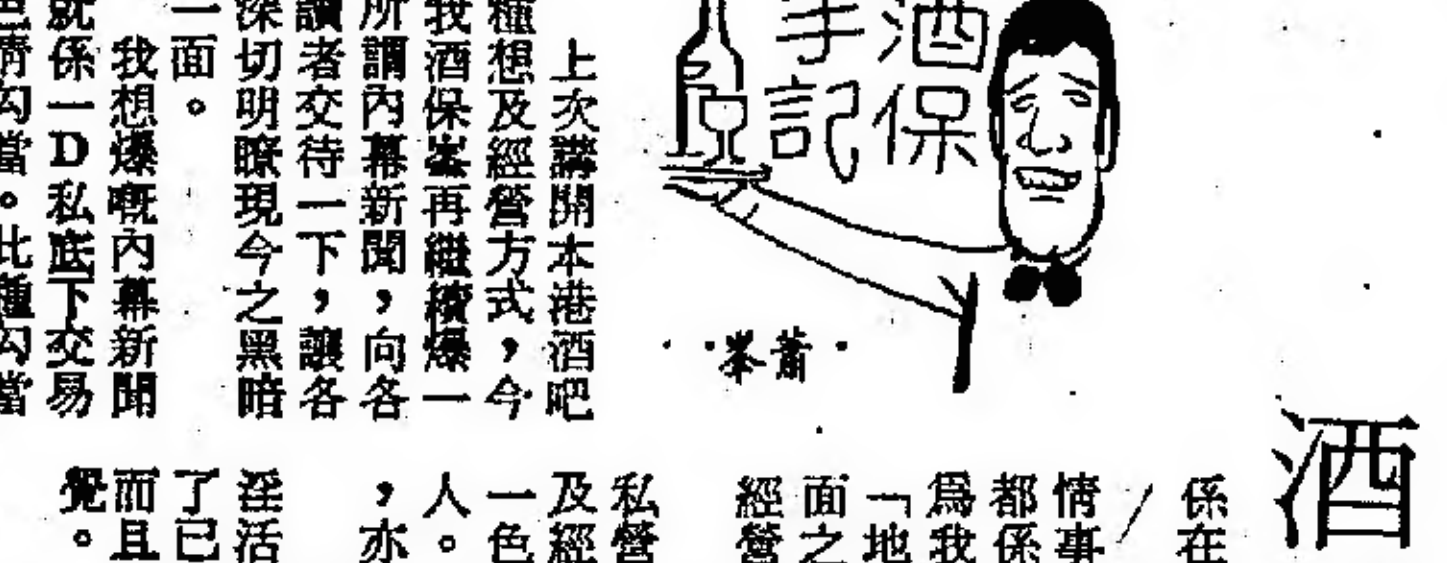 酒
酒保
手記
蕭峯
上次講開本港酒吧
種想及經營方式，今
我酒保峯再繼續爆一
所謂內幕新聞，向各
讀者交待一下，讓各
深切明瞭現今之黑暗
一面。
我想爆嘅內幕新聞
就係一D私底下交易
色情勾當。此種勾當
係在
／
情事
都係
爲我
「地
面之
經營
私營
及經
一色
人。
，亦
淫活
了已
而且
覺。